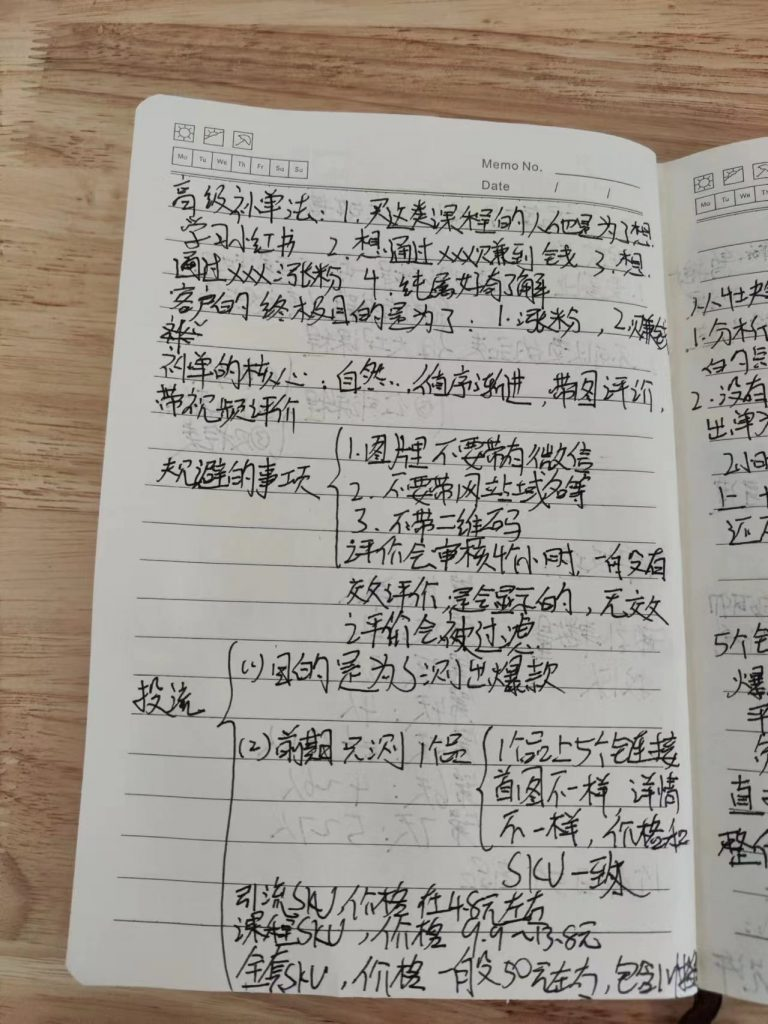 Mo Tu We Th Fr Sa Su
Memo No.
Date / /
高级补单法: 1. 买这类课程的人他是为了想
学习小红书 2. 想通过xxx赚到钱 3. 想
通过xxx涨粉 4. 纯属好奇了解
客户的终极目的是为了: 1. 涨粉, 2. 赚钱
补单的核心: 自然…, 循序渐进, 带图评价,
带视频评价
规避的事项
1. 图片里不要带有微信
2. 不要带网站域名等
3. 不带二维码
评价会审核4个小时, 一般没有
效评价, 是会显示的, 无效
评价会被过滤
投流
(1) 目的是为了测出爆款
(2) 前期只测1个品
1个品上5个链接
首图不一样 详情
不一样, 价格和
SKU一致
引流SKU, 价格在4.8元左右
课程SKU, 价格 9.9~13.8元
全套SKU, 价格一般50元左右, 包含
Mo Tu We Th
1. 分析
2. 没有
出单
5个
爆
平
直
整个